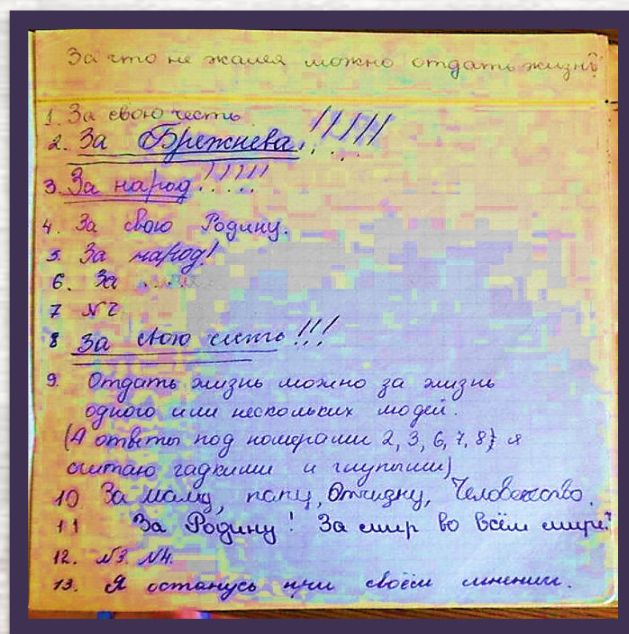 За что не жалея можно отдать жизнь?
1. За свою честь.
2. За Брежнева!!!!!
3. За народ!!!!!
4. За свою Родину.
5. За народ!
6. За
7 №2
8 За свою честь!!!
9. Отдать жизнь можно за жизнь
одного или нескольких людей.
(А ответы под номерами 2, 3, 6, 7, 8) я
считаю гадкими и глупыми)
10 За маму, папу, Отчизну, Человечество.
11 За Родину! За мир во всём мире!
12. №3. №4.
13. Я останусь при своём мнении.